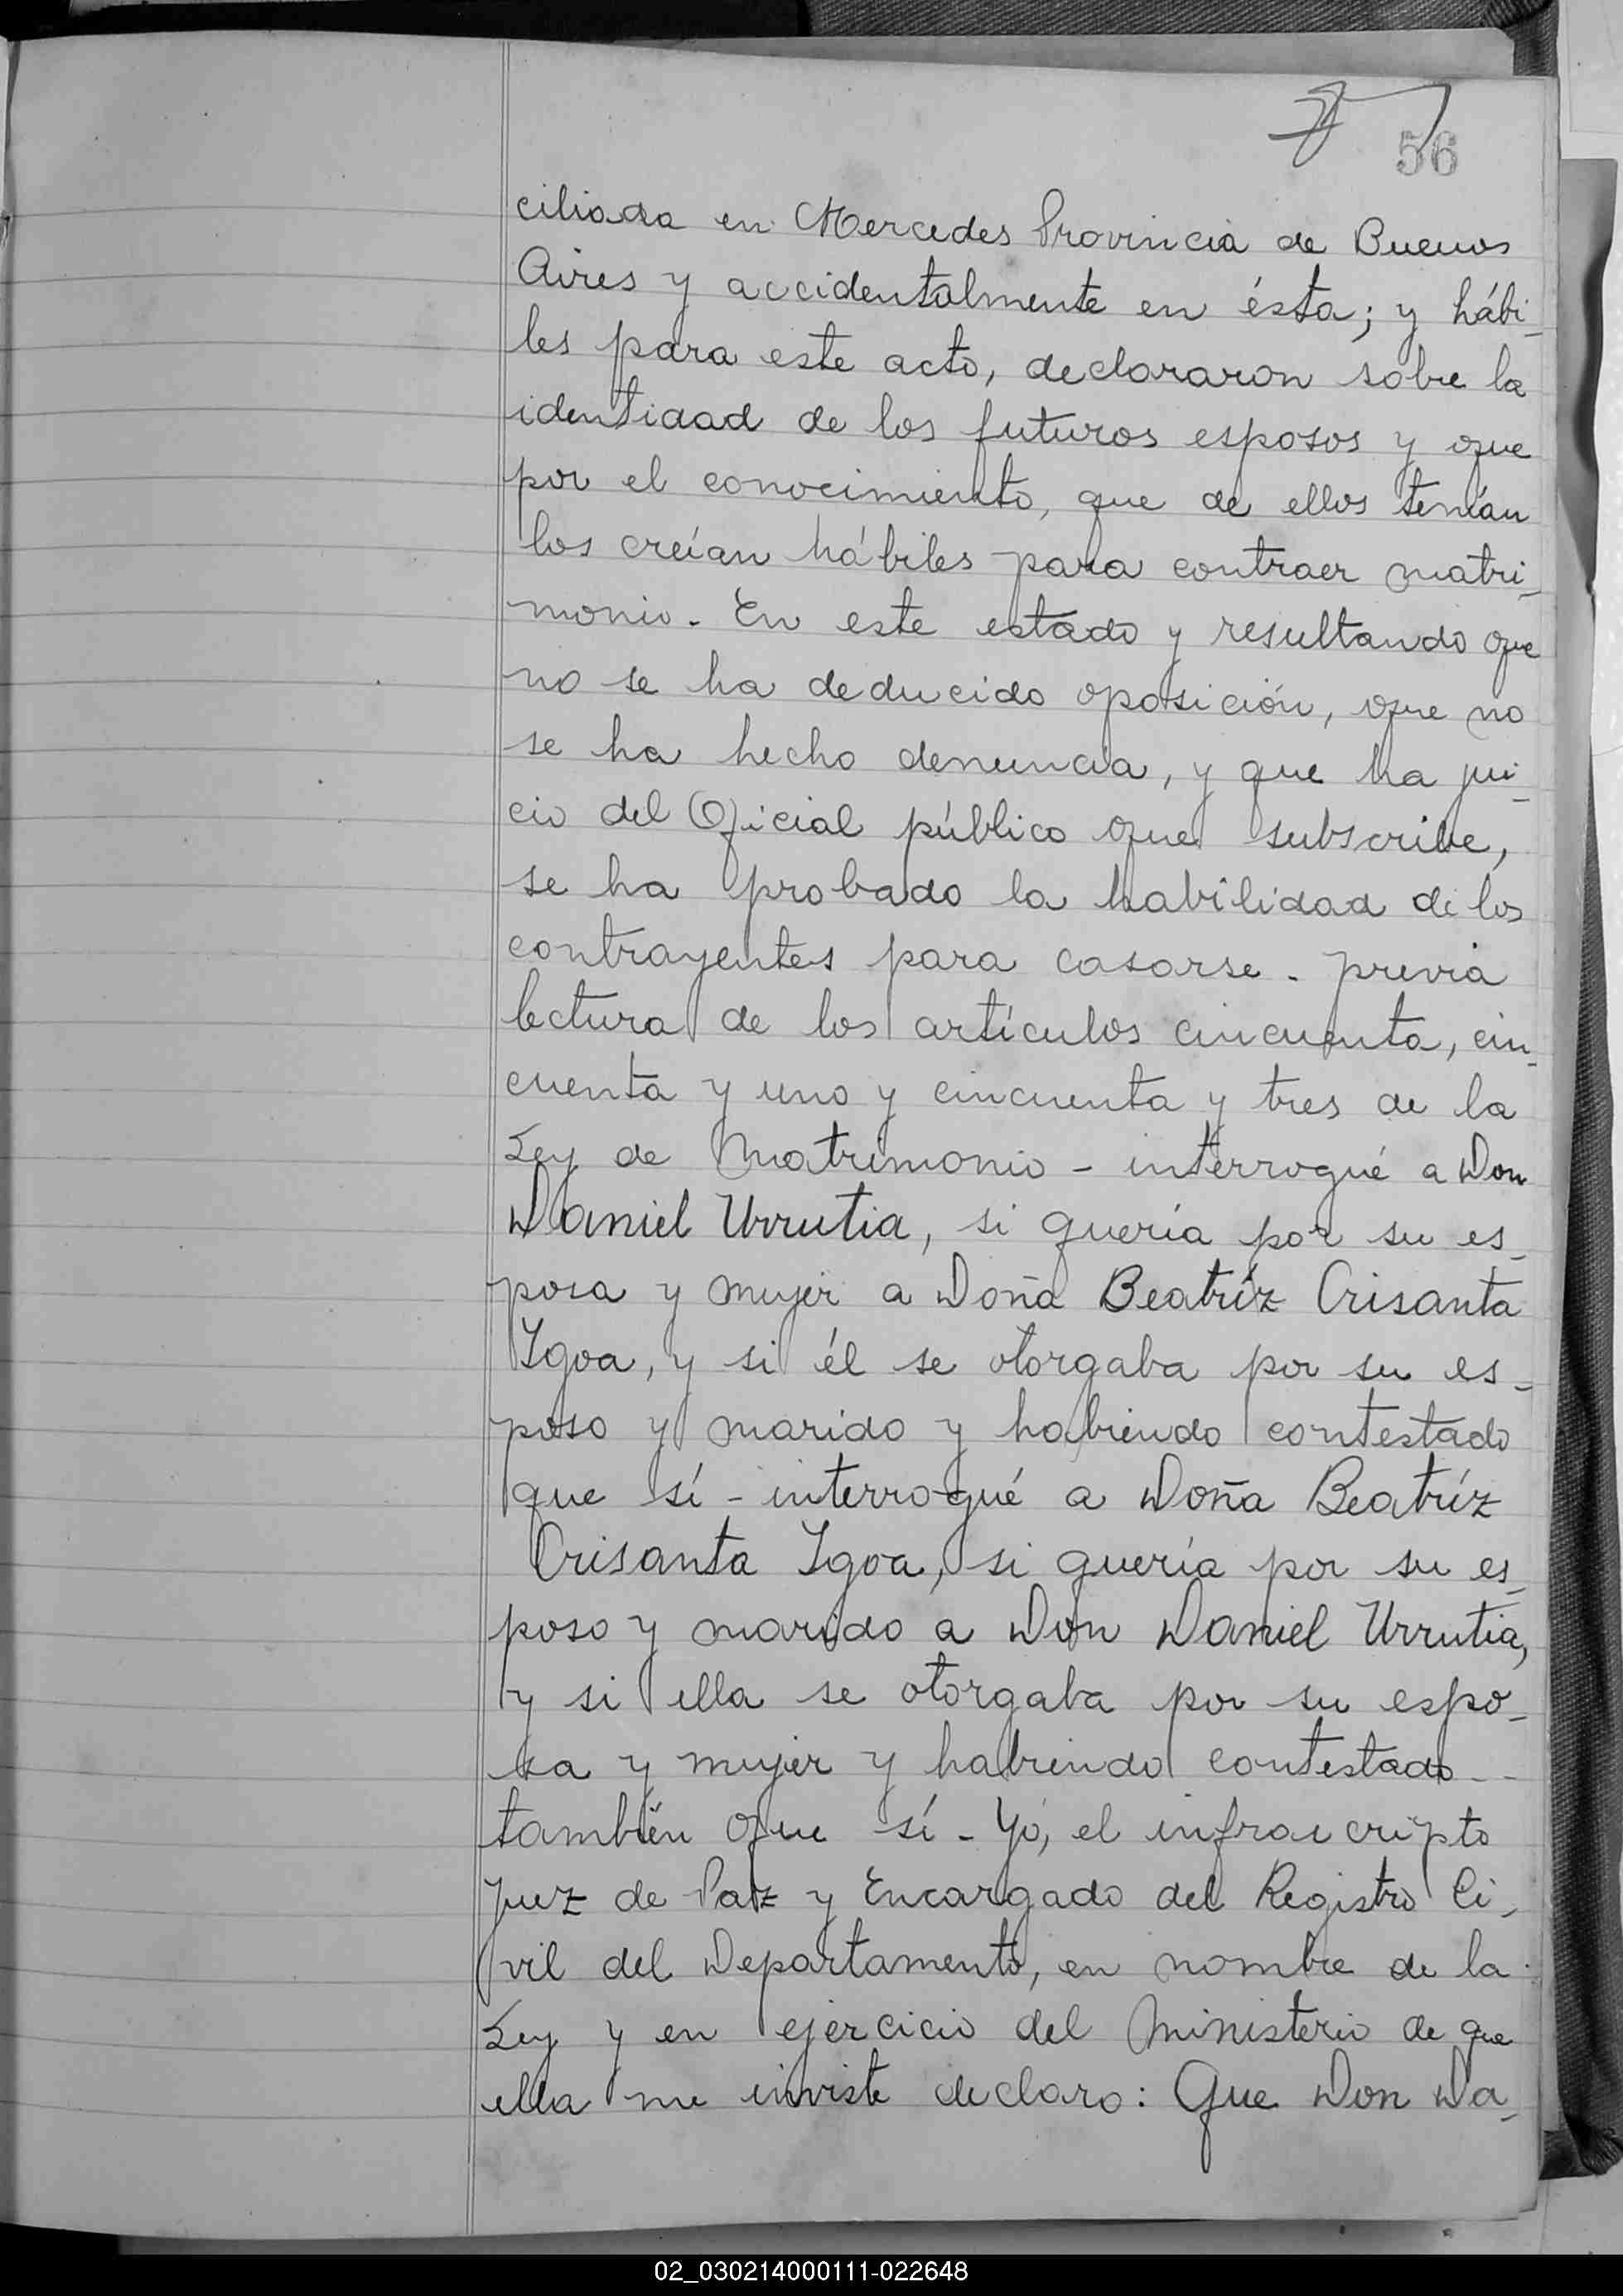 56
ciliada en Mercedes Provincia de Buenos
Aires y accidentalmente en ésta; y hábi-
les para este acto, declararon sobre la
identidad de los futuros esposos y que
por el conocimiento, que de ellos tenían
los creían hábiles para contraer matri-
monio. En este estado y resultando que
no se ha deducido oposición, que no
se ha hecho denuncia, y que ha jui-
cio del Oficial público que subscribe,
se ha probado la habilidad de los
contrayentes para casarse - previa
lectura de los artículos cincuenta, cin-
cuenta y uno y cincuenta y tres de la
Ley de Matrimonio - interrogué a Don
Daniel Urrutia, si quería por su es-
posa y mujer a Doña Beatríz Crisanta
Igoa, y si él se otorgaba por su es-
poso y marido y habiendo contestado
que sí - interrogué a Doña Beatríz
Crisanta Igoa, si quería por su es-
poso y marido a Don Daniel Urrutia,
y si ella se otorgaba por su espo-
sa y mujer y habiendo contestado --
también que sí - Yó, el infrascripto
Juez de Paz y Encargado del Registro Ci-
vil del Departamento, en nombre de la
Ley y en ejercicio del Ministerio de que
ella me inviste declaro: Que Don Da-
02_030214000111-022648